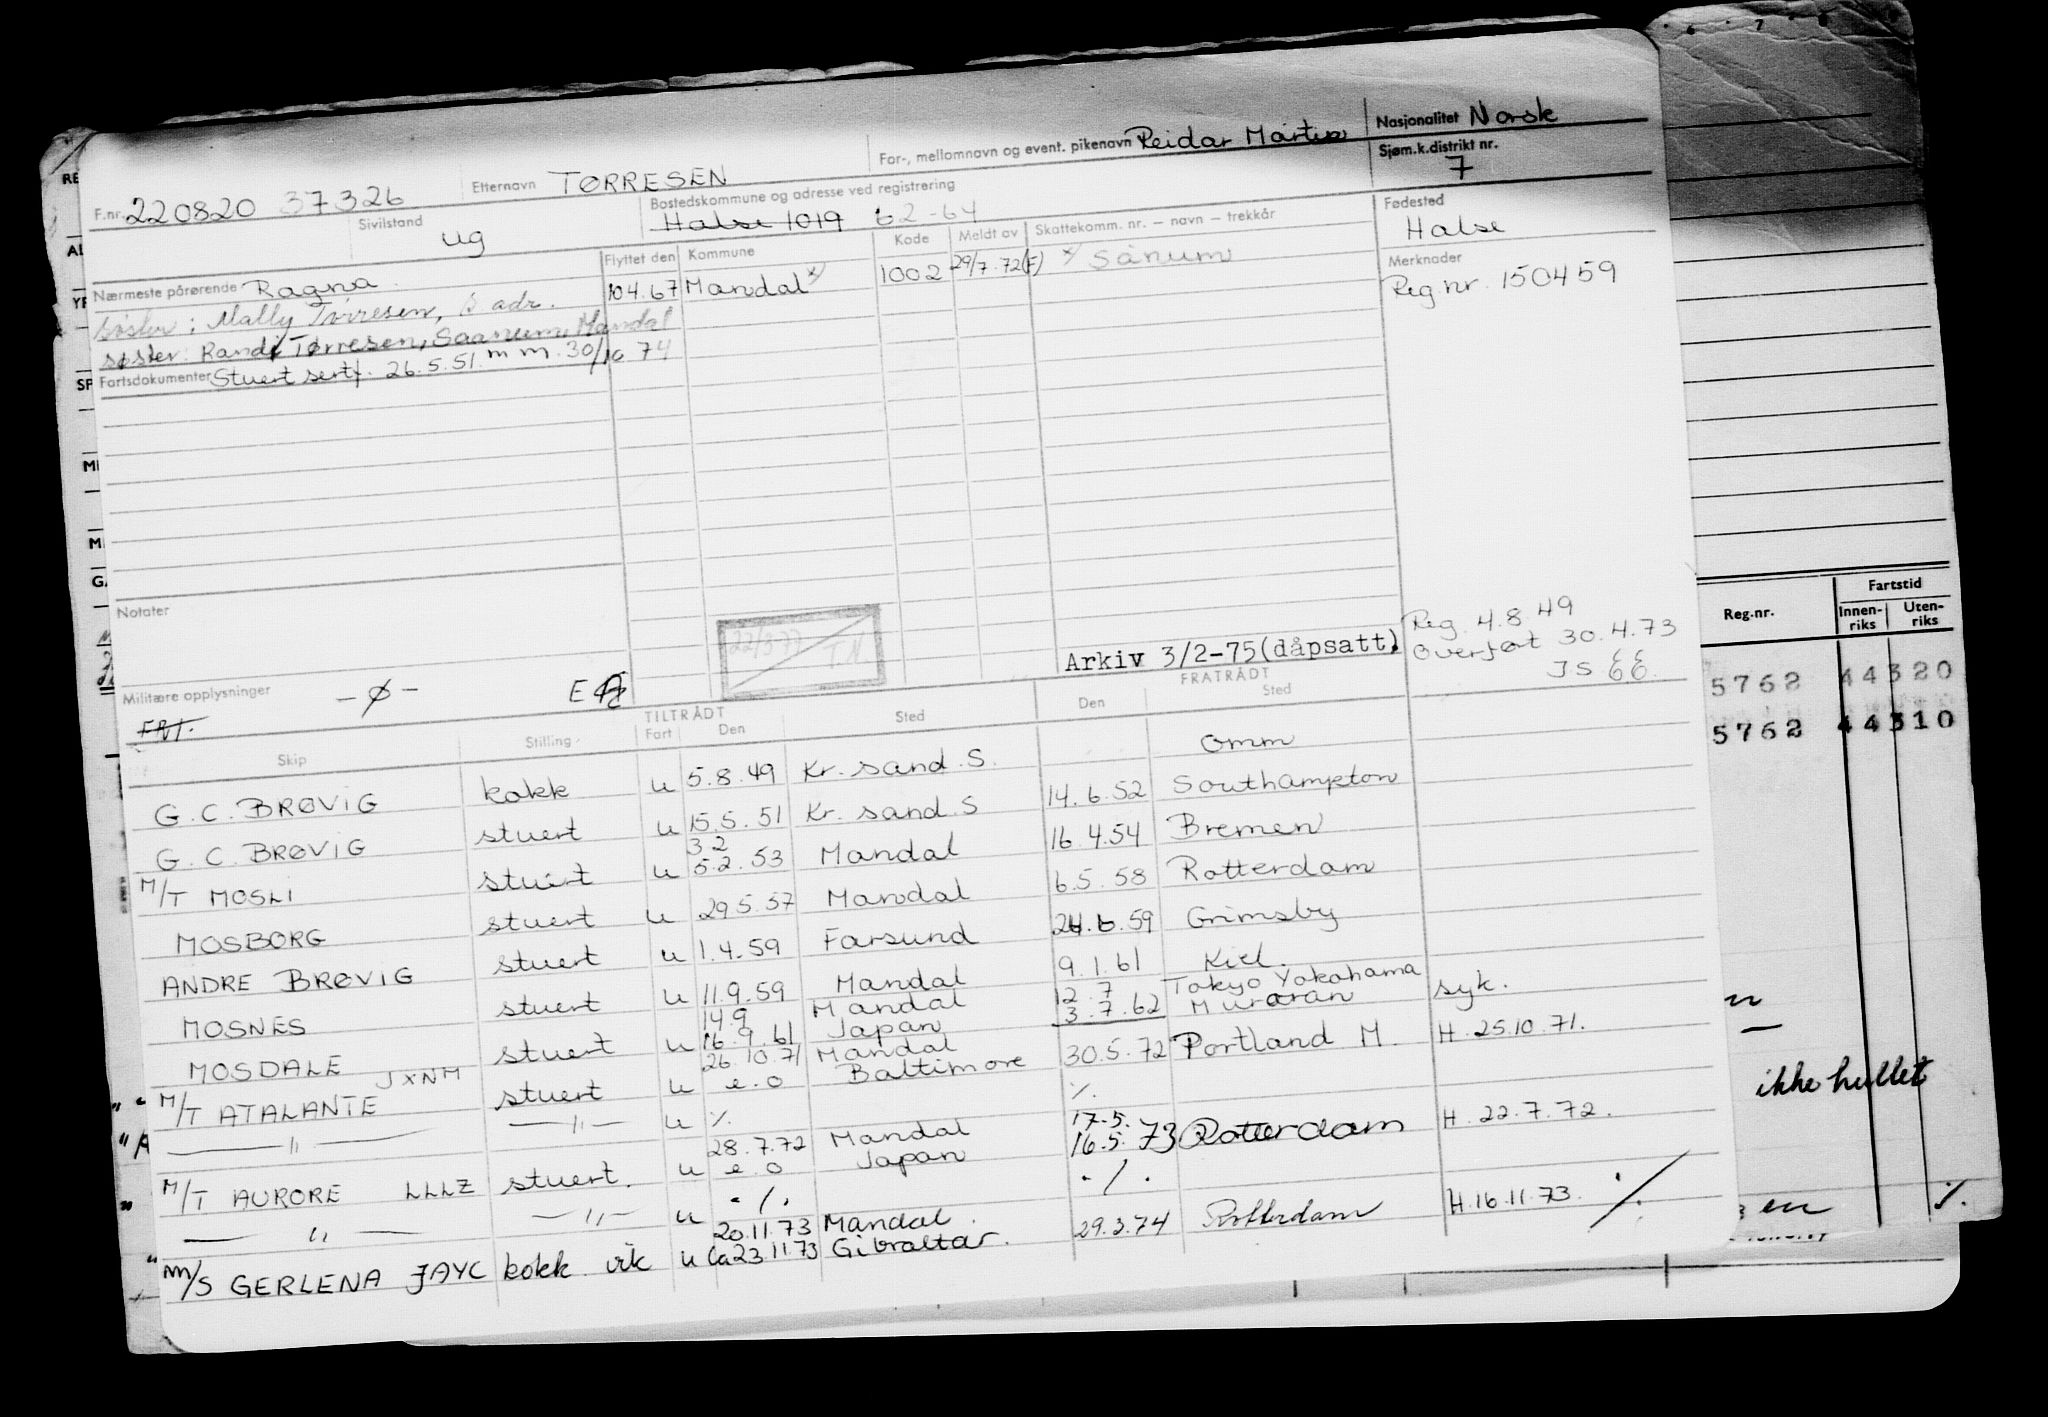 F.nr. 220820 37326 Etternavn TØRRESEN For-, mellomnavn og event. pikenavn Reidar Martin Nasjonalitet Norsk
Sjøm.k.distrikt nr. 7
Sivilstand ug Bostedskommune og adresse ved registrering Halse 1019 62-64 Fødested Halse
Nærmeste pårørende Ragna
søster: Mally Tørresen, s. adr.
søster: Randi Tørresen, Saanum, Mandal
Flyttet den Kommune Kode Meldt av Skattekomm. nr. – navn – trekkår
10.4.67 Mandal x) 1002 29/7.72(F) x) Sånum
Merknader
Reg.nr. 150459
Fartsdokumenter Stuert sertf. 26.5.51 m m. 30/10 74
Notater
22/3 77 T.N.
Arkiv 3/2-75(dåpsatt)
Reg. 4.8.49
Overført 30.4.73
JS EE.
Militære opplysninger – ø –
FRT.
TILTRÅDT FRATRÅDT
Skip Stilling Fart Den Sted Den Sted
G.C. BRØVIG kokk u 5.8.49 Kr.sand.S. Omm
G.C. BRØVIG stuert u 15.5.51 Kr.sand.S 14.6.52 Southampton
M/T MOSLI stuert u 3.2 5.2.53 Mandal 16.4.54 Bremen
MOSBORG stuert u 29.5.57 Mandal 6.5.58 Rotterdam
ANDRE BRØVIG stuert u 1.4.59 Farsund 24.6.59 Grimsby
MOSNES stuert u 11.9.59 Mandal 9.1.61 Kiel.
MOSDALE stuert u 14.9 16.9.61 Mandal Japan 12.7 3.7.62 Tokyo Yokohama Muroran syk.
M/T ATALANTE JXNM stuert u 26.10.71 e.o Mandal Baltimore 30.5.72 Portland M. H. 25.10.71.
— " — — " — u ./. ./.
M/T AURORE LLLZ stuert. u 28.7.72 e.o Mandal Japan 17.5. 16.5.73 Rotterdam H. 22.7.72.
— " — — " — u ./. ./.
M/S GERLENA JAYC kokk vik u 20.11.73 Ca 23.11.73 Mandal Gibraltar. 29.3.74 Rotterdam H. 16.11.73. ./.
Reg.nr. Fartstid
Innen-riks Uten-riks
5762 44320
5762 44310
ikke hullet
en ./.